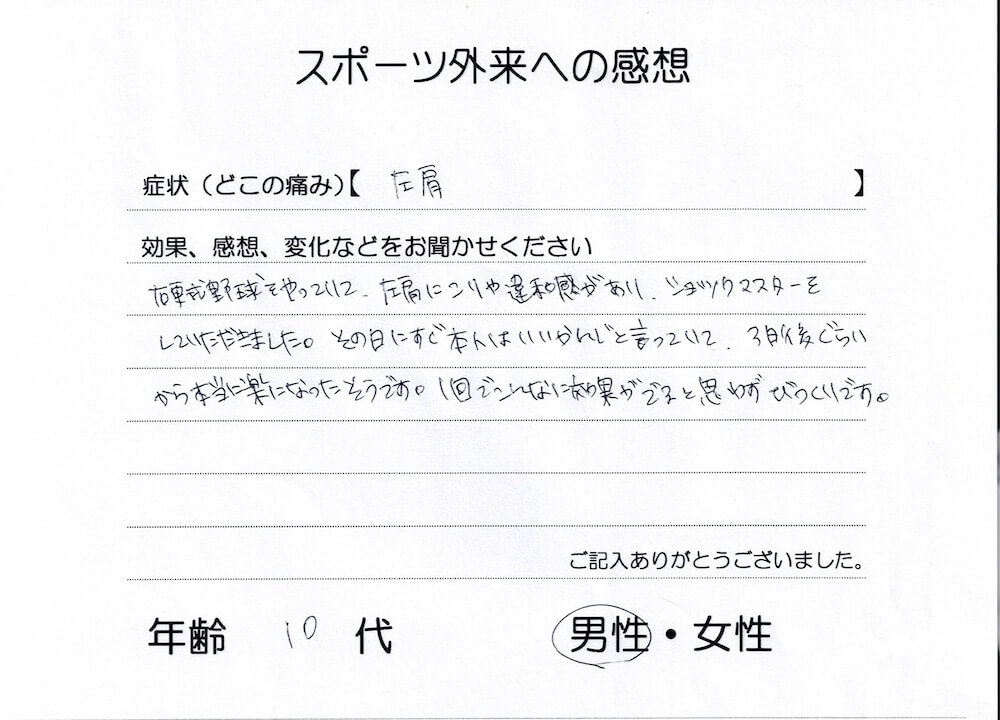 スポーツ外来への感想
症状（どこの痛み）【 左肩 】
効果、感想、変化などをお聞かせください
硬式野球をやっていて、左肩にコリや違和感があり、ショックマスターを
していただきました。その日にすぐ本人はいいかんじと言っていて、3日後ぐらい
から本当に楽になったそうです。1回でこんなに効果がでると思わずびっくりです。
ご記入ありがとうございました。
年齢 10 代 男性・女性